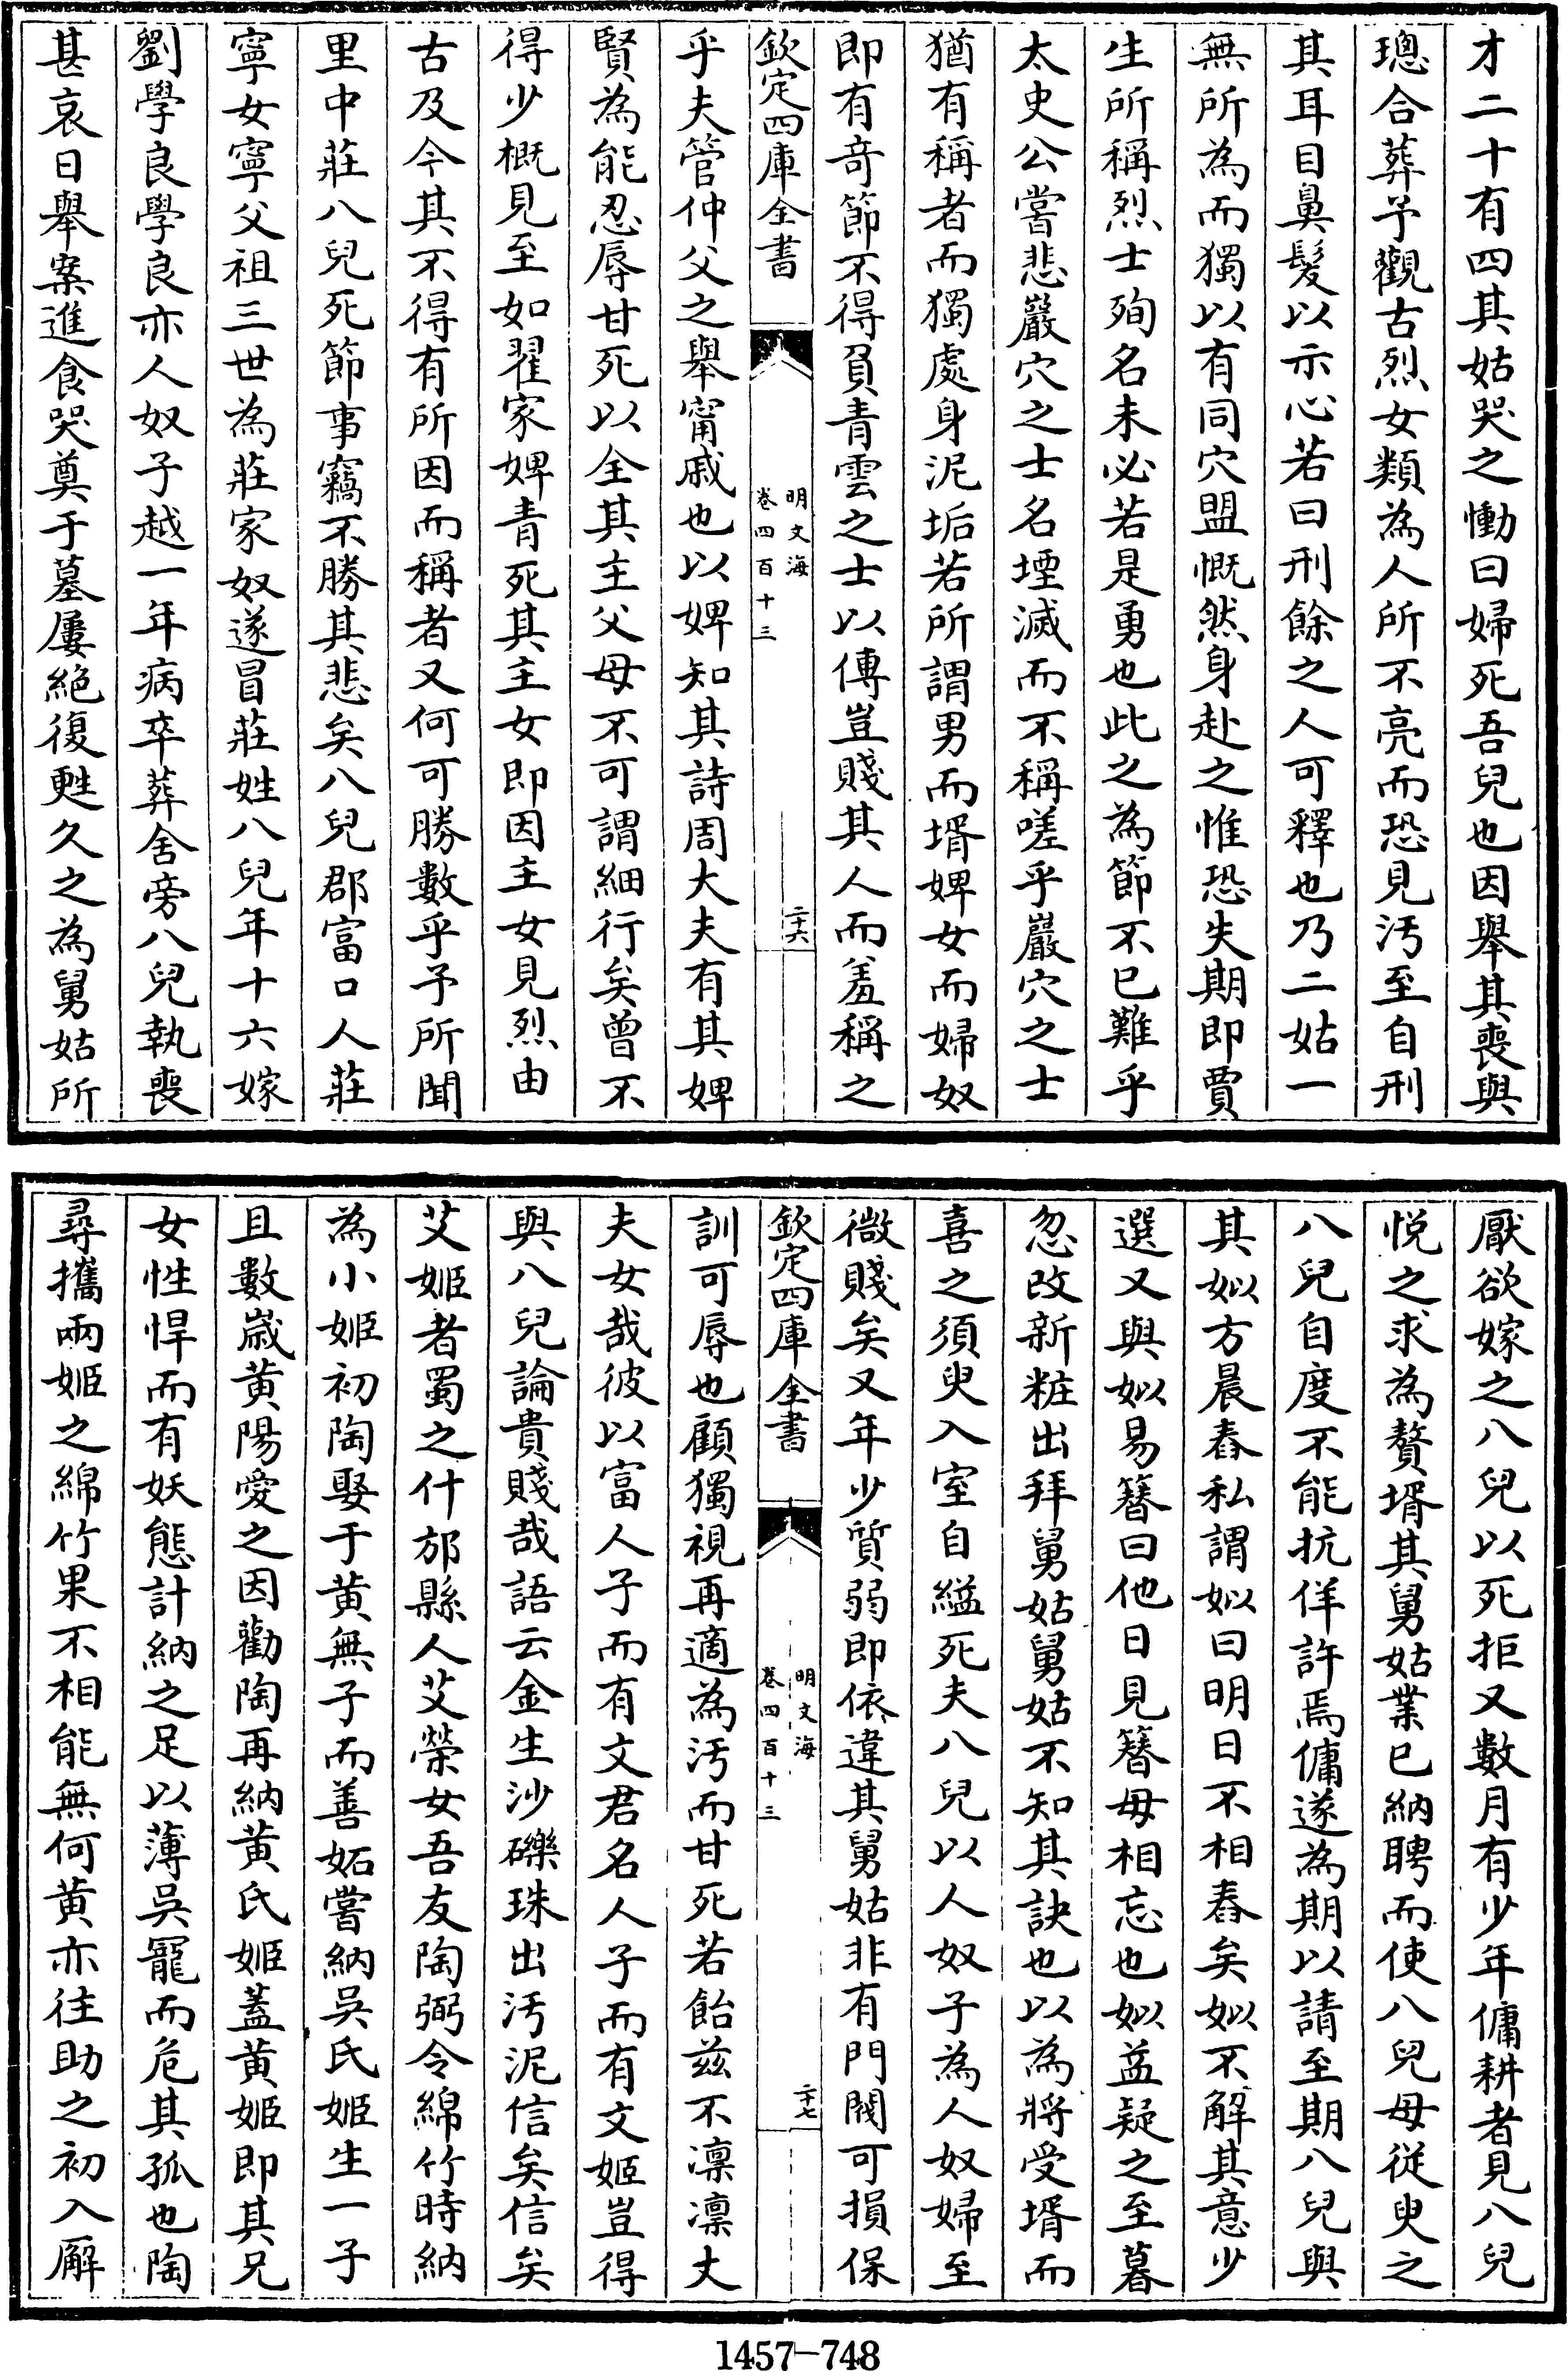 才二十有四其姑哭之慟曰婦死吾兒也因舉其喪與
璁合葬予觀古烈女類為人所不亮而恐見汚至自刑
其耳目鼻髮以示心若曰刑餘之人可釋也乃二姑一
無所為而獨以有同穴盟慨然身赴之惟恐失期即賈
生所稱烈士殉名未必若是勇也此之為節不已難乎
太史公嘗悲巖穴之士名堙滅而不稱嗟乎巖穴之士
猶有稱者而獨處身泥垢若所謂男而壻婢女而婦奴
即有奇節不得負青雲之士以傳豈賤其人而羞稱之
欽定四庫全書
明文海
卷四百十三
二十六
乎夫管仲父之舉甯戚也以婢知其詩周大夫有其婢
賢為能忍辱甘死以全其主父母不可謂細行矣曾不
得少概見至如翟家婢青死其主女即因主女見烈由
古及今其不得有所因而稱者又何可勝數乎予所聞
里中莊八兒死節事竊不勝其悲矣八兒郡富口人莊
寧女寧父祖三世為莊家奴遂冒莊姓八兒年十六嫁
劉學良學良亦人奴子越一年病卒葬舍旁八兒執喪
甚哀日舉案進食哭奠于墓屢絕復甦久之為舅姑所
厭欲嫁之八兒以死拒又數月有少年傭耕者見八兒
悅之求為贅壻其舅姑業已納聘而使八兒母從臾之
八兒自度不能抗佯許焉傭遂為期以請至期八兒與
其姒方晨舂私謂姒曰明日不相舂矣姒不解其意少
選又與姒易簪曰他日見簪毋相忘也姒益疑之至暮
忽改新粧出拜舅姑舅姑不知其訣也以為將受壻而
喜之須臾入室自縊死夫八兒以人奴子為人奴婦至
微賤矣又年少質弱即依違其舅姑非有門閥可損保
欽定四庫全書
明文海
卷四百十三
二十七
訓可辱也顧獨視再適為汚而甘死若飴兹不凛凛丈
夫女哉彼以富人子而有文君名人子而有文姬豈得
與八兒論貴賤哉語云金生沙礫珠出汚泥信矣信矣
艾姬者蜀之什邡縣人艾榮女吾友陶弼令綿竹時納
為小姬初陶娶于黄無子而善妬嘗納吳氏姬生一子
且數歲黄陽愛之因勸陶再納黄氏姬蓋黄姬即其兄
女性悍而有妖態計納之足以薄吳寵而危其孤也陶
尋攜兩姬之綿竹果不相能無何黄亦往助之初入廨
1457-748